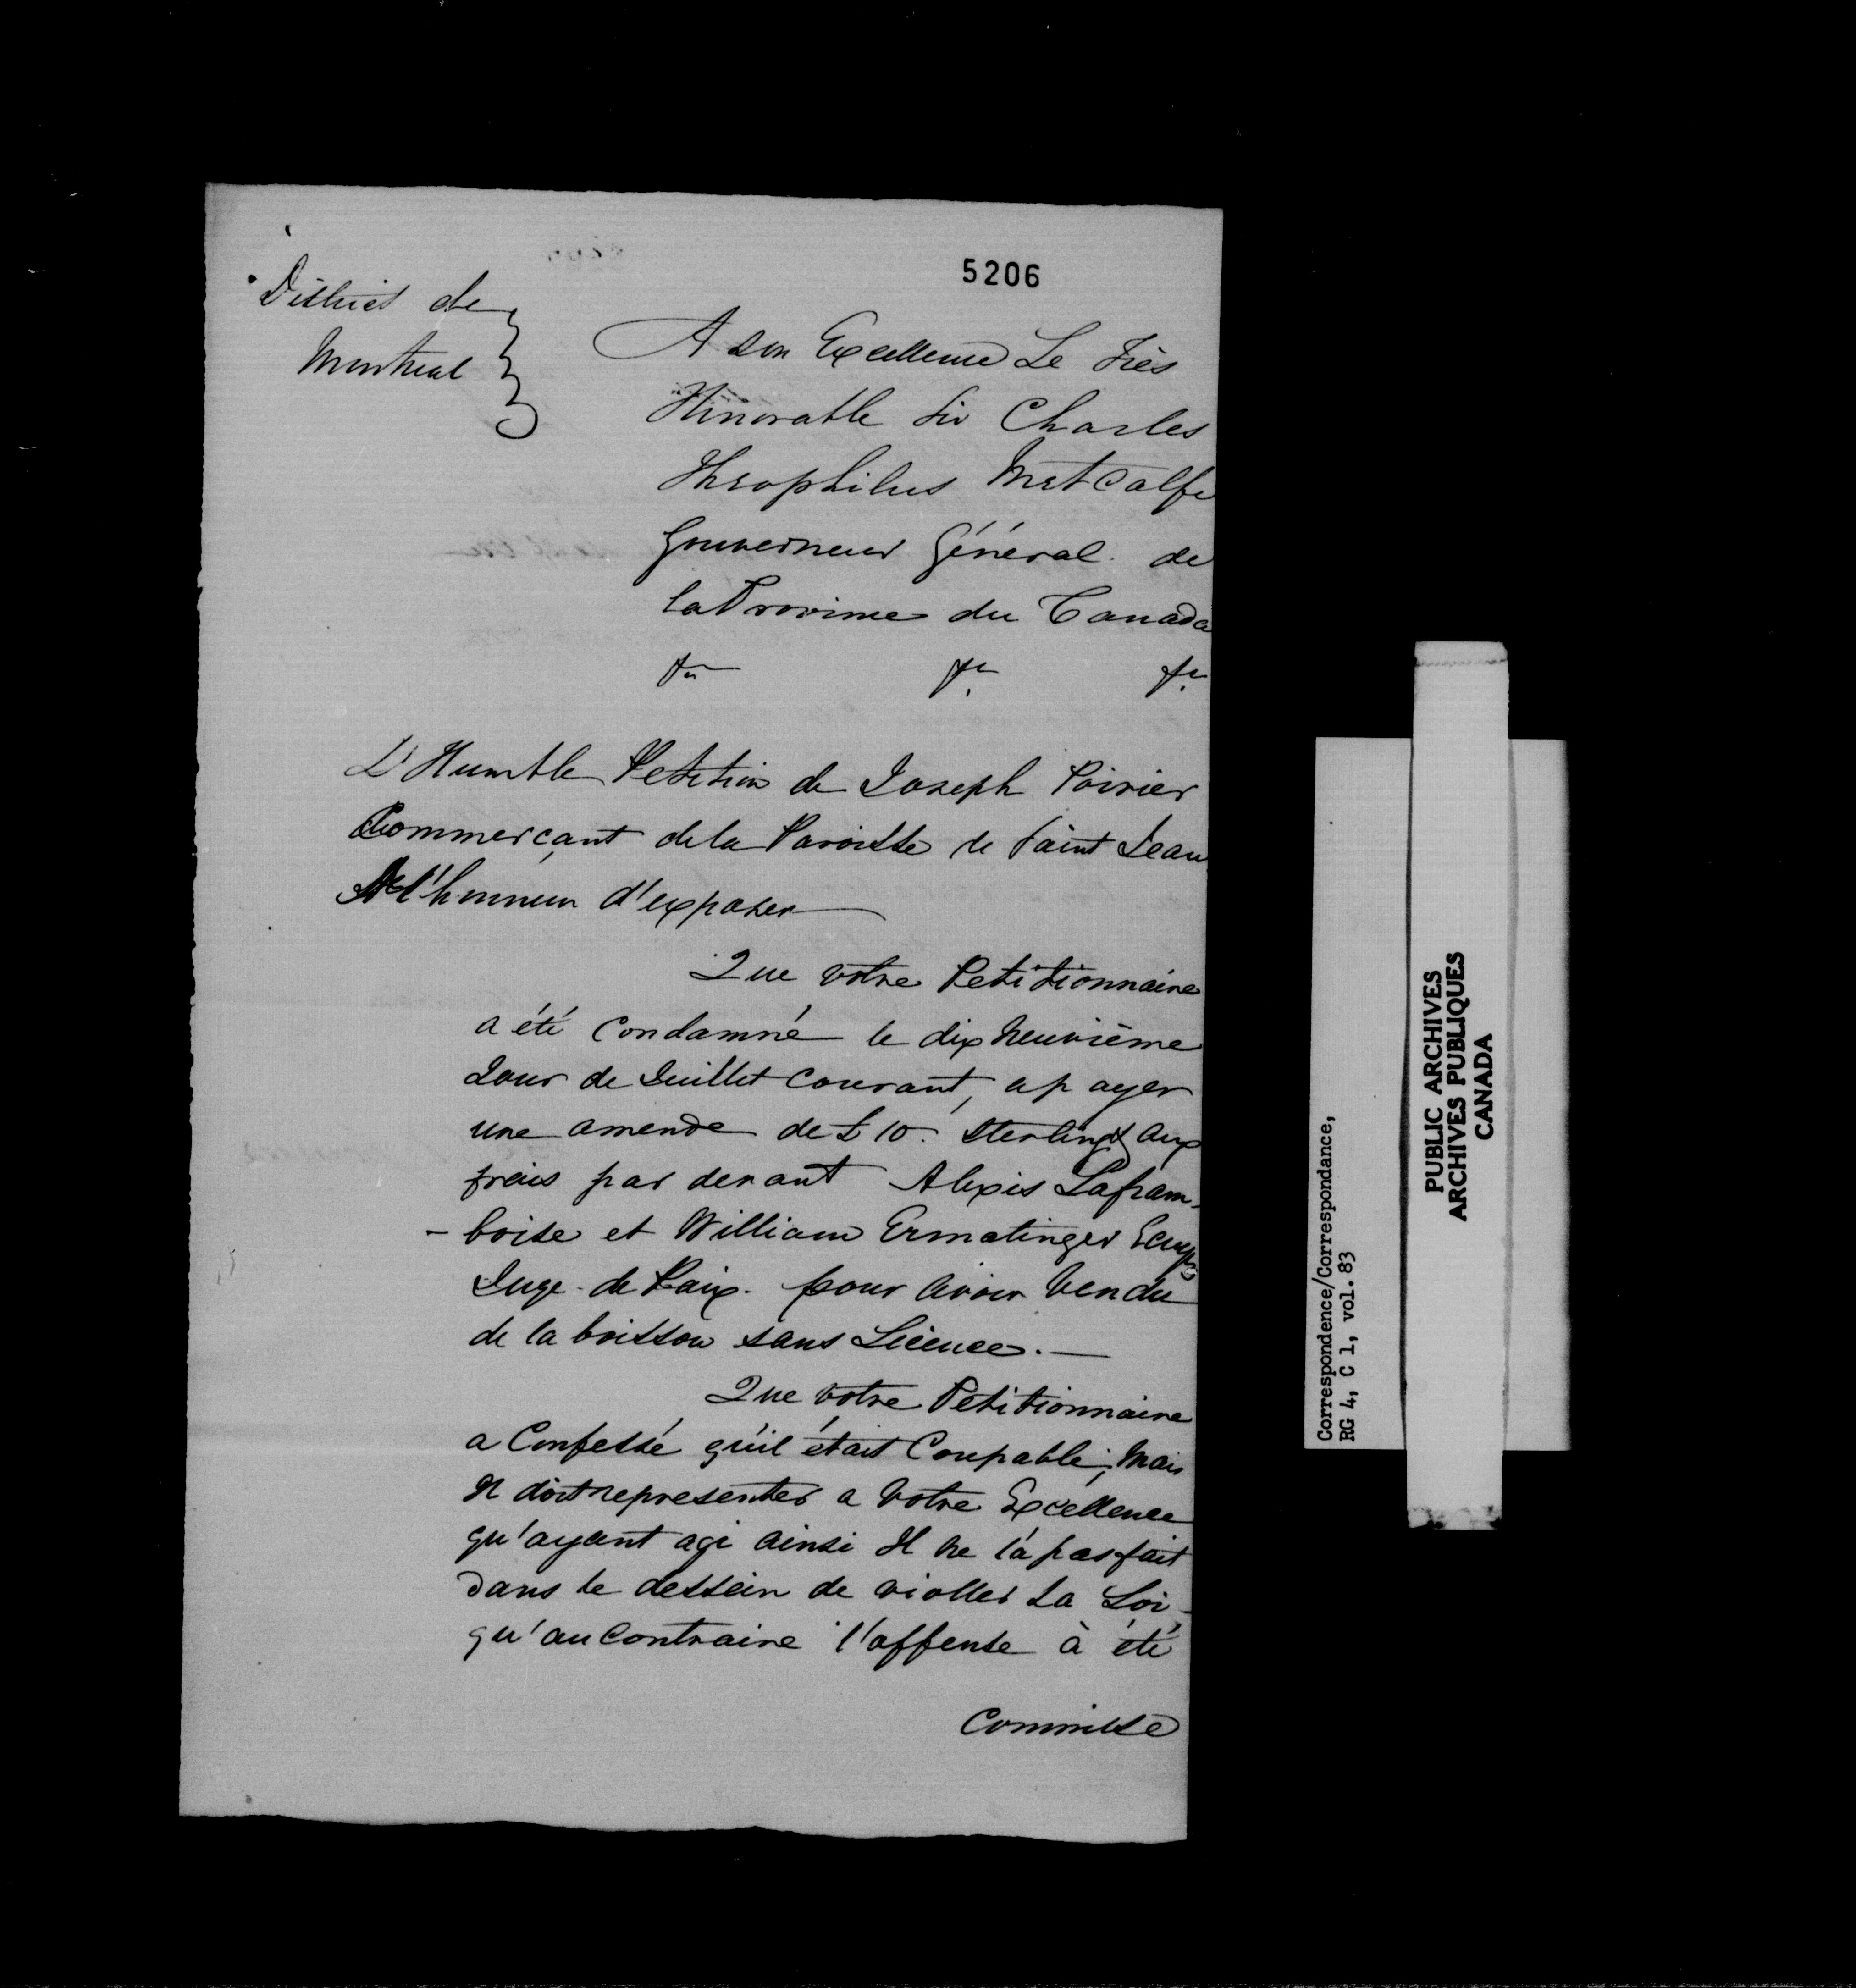 5206
District de
Montreal
A son Excellence Le Très
Honorable Sir Charles
Theophilus Metcalfe
Gouverneur Général de
la Province du Canada
&c &c. &c.
L'Humble Petition de Joseph Poirier
Commerçant de la Paroisse de Saint Jean
A l'honneur d'exposer
Que votre Petitionnaire
a été Condamné le dix neuvième
Jour de Juillet courant, a payer
une amende de £10. Sterling & aux
frais par devant Alexis Lafram-
-boise et William Ermatinger Ecuyrs
Juge de Paix. pour avoir vendu
de la boisson sans Licence.
Que votre Petitionnaire
a Confessé qu'il était Coupable; Mais
Il doit representer a Votre Excellence
qu'ayant agi ainsi Il ne l'a pas fait
dans le dessein de violler La Loi
qu'au Contraire l'offense à été
Commisse
Correspondence/Correspondance,
RG 4, C 1, vol. 83
PUBLIC ARCHIVES
ARCHIVES PUBLIQUES
CANADA